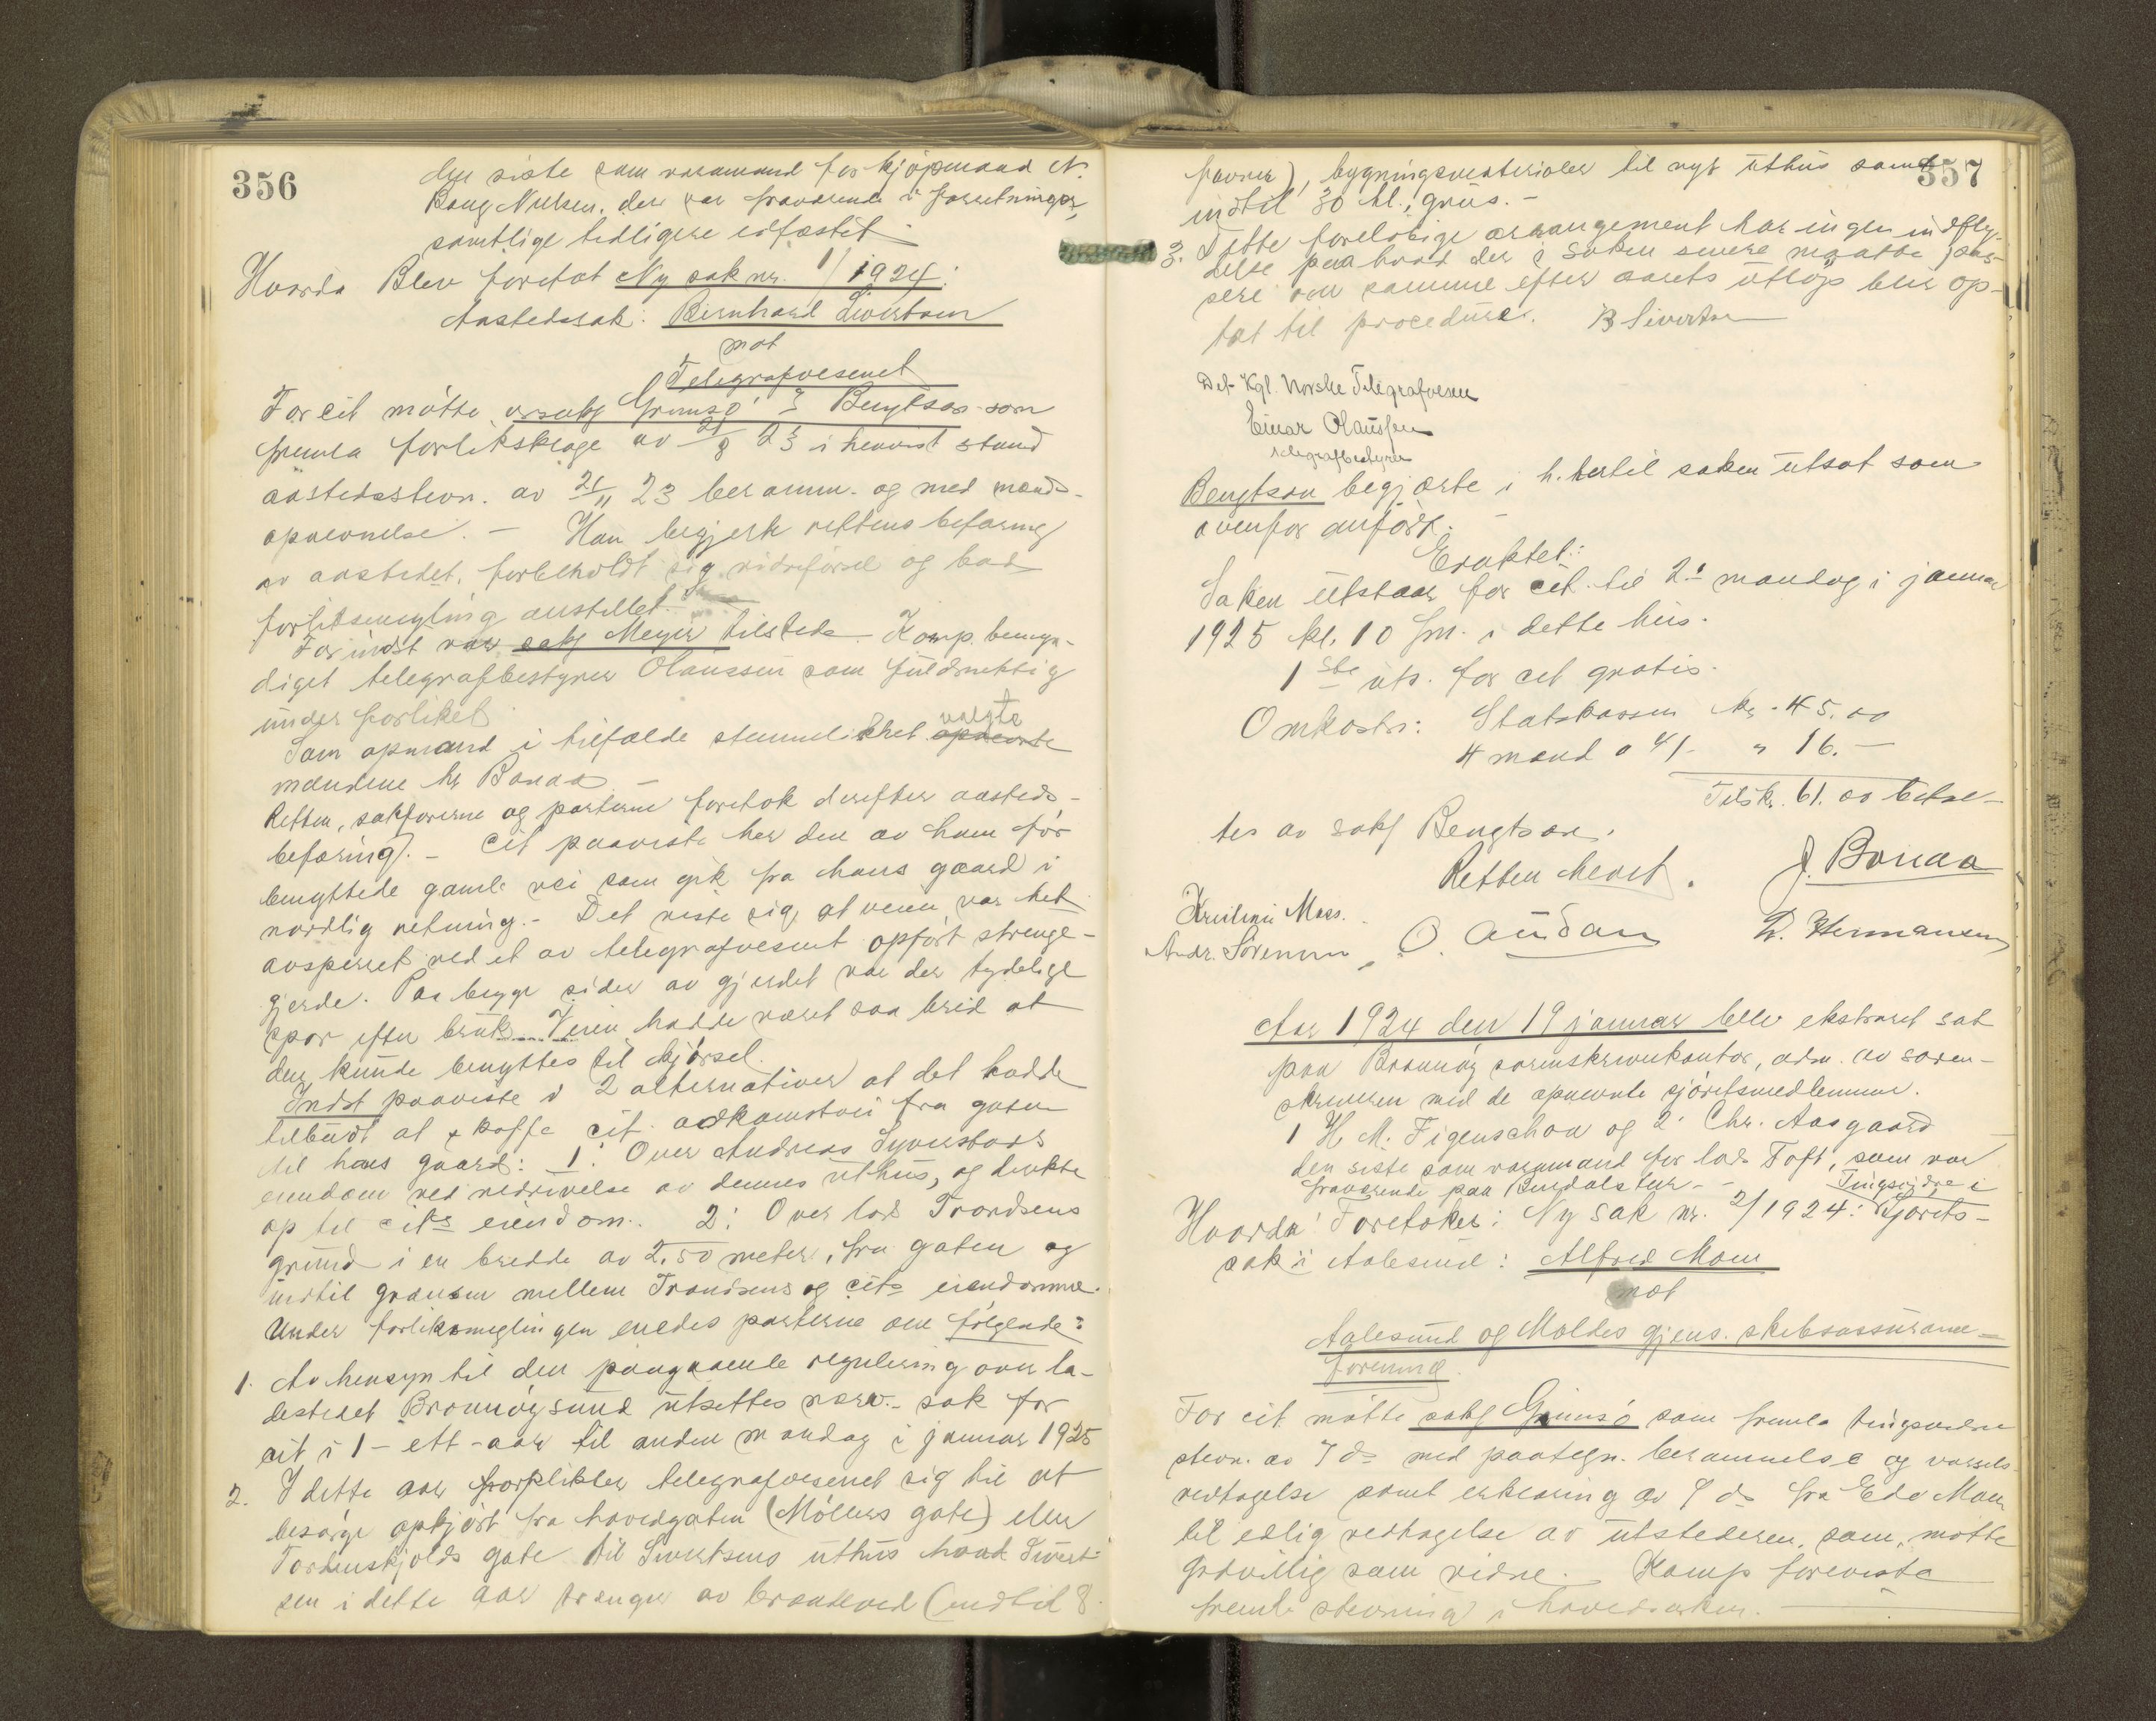 356
den siste som varamand for kjöpmand N.
Bang Nielsen, der var fraværende i forretninger,
samtlige tidligere edfæstet.
Hvorda Blev foretat Ny sak nr. 1/1924:
Aastedssak: Bernhard Sivertsen
mot
Telegrafvesenet
For cit mötte orsakf Grimsö Bengtson som
fremla forliksklage av 21/8 23 i henvist stand
aastedsstevn. av 21/11 23 beramm. og med mands-
opnevnelse. – Han begjerte rettens befaring
av aastedet, forbeholdt sig vidreförsel og bad
forliksmegling anstillet.
For indst var sakf Meyer tilstede. Komp. bemyn-
diget telegrafbestyrer Olaussen som fuldmektig
under forliket.
Som opmand i tilfælde stemmelikhet valgte
mændene hr Bonaa –
Retten, sakförerne og parterne foretok derefter aasteds-
befaring. – Cit paaviste her den av ham för
benyttede gamle vei som gik fra hans gaard i
nordlig retning. – Det viste sig at veien var helt
avsperret ved et av telegrafvesenet opfört strenge-
gjerde. Paa begge sider av gjerdet var der tydelige
spor efter bruk. Veien hadde været saa breid at
den kunde benyttes til kjörsel.
Indst paaviste i 2 alternativer at det hadde
tilbudt at skaffe cit. adkomstvei fra gaten
til hans gaard: 1: Over Andreas Syvertsens
eiendom ved nedrivelse av dennes uthus, og direkte
op til cits eiendom. 2: Over lods Trondsens
grund i en bredde av 2.50 meter, fra gaten og
indtil grænsen mellem Trondsens og cits eiendomme.
Under forliksmeglingen enedes parterne om fölgende:
1. Av hensyn til den paagaaende regulering over la-
destedet Brönnöysund utsettes nærv. sak for
cit i 1 – ett – aar til anden mandag i januar 1925
2. I dette aar forplikter telegrafvesenet sig til at
besörge opkjört fra hovedgaten (Möllers gate) eller
Tordenskjolds gate til Sivertsens uthus hvad Sivert-
sen i dette aar trænger av brændeved (indtil 8
357
favner), bygningsmaterialer til nyt uthus samt
indtil 30 hl. grus. –
3. Dette forelöbige arrangement har ingen indfly-
delse paa hvad der i saken senere maatte pas-
sere om samme efter aarets utlöp blir op-
tat til procedure. B Sivertsen
Det Kgl. Norske Telegrafvesen
Einar Olaussen
telegrafbestyrer
Bengtson begjærte i h. hertil saken utsat som
ovenfor anfört. –
Eraktet:
Saken utstaar for cit. til 2. mandag i januar
1925 kl. 10 fm. i dette hus.
1ste uts. for cit gratis.
Omkostn: Statskassen kr. 45.00
4 mænd a 4/- " 16. –
Tils kr. 61.00 betal-
tes av sakf Bengtson.
Retten hevet. J. Bonaa
Andr. Sörensen O. Audan D. Hermansen
Aar 1924 den 19 januar blev ekstraret sat
paa Brönnöy sorenskriverkontor, adm. av soren-
skriveren med de opnevnte sjöretsmedlemmer.
1 H. M. Figenschou og 2. Chr. Aasgaard
den siste som varamand for lods Toft, som var
fraværende paa Bindalstur. –
Hvorda Foretokes: Ny sak nr. 2/1924: Tingsvidne i Sjörets-
sak i Aalesund: Alfred Moen
mot
Aalesund og Moldes gjens. skibsassurance-
forening.
For cit mötte sakf Grimsö som fremla tingsvidne
stevn. av 7 ds med paategn. berammelse og varsels
vedtagelse samt erklæring av 9 ds fra Edv Moen
til edlig vedtagelse av utstederen, som mötte
godvillig som vidne. Komp foreviste
fremla stevning i hovedsaken. –